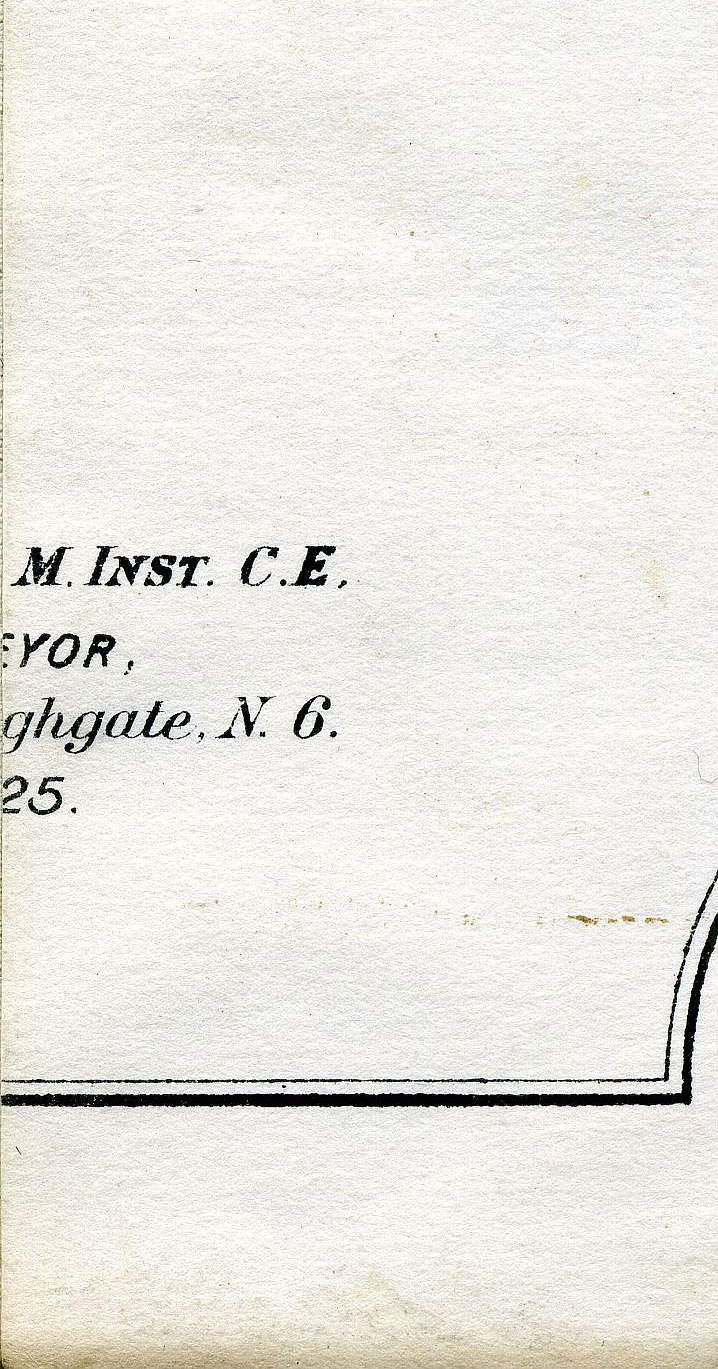 M. INST. C.E.,
EYOR,
ghgate, N. 6.
25.